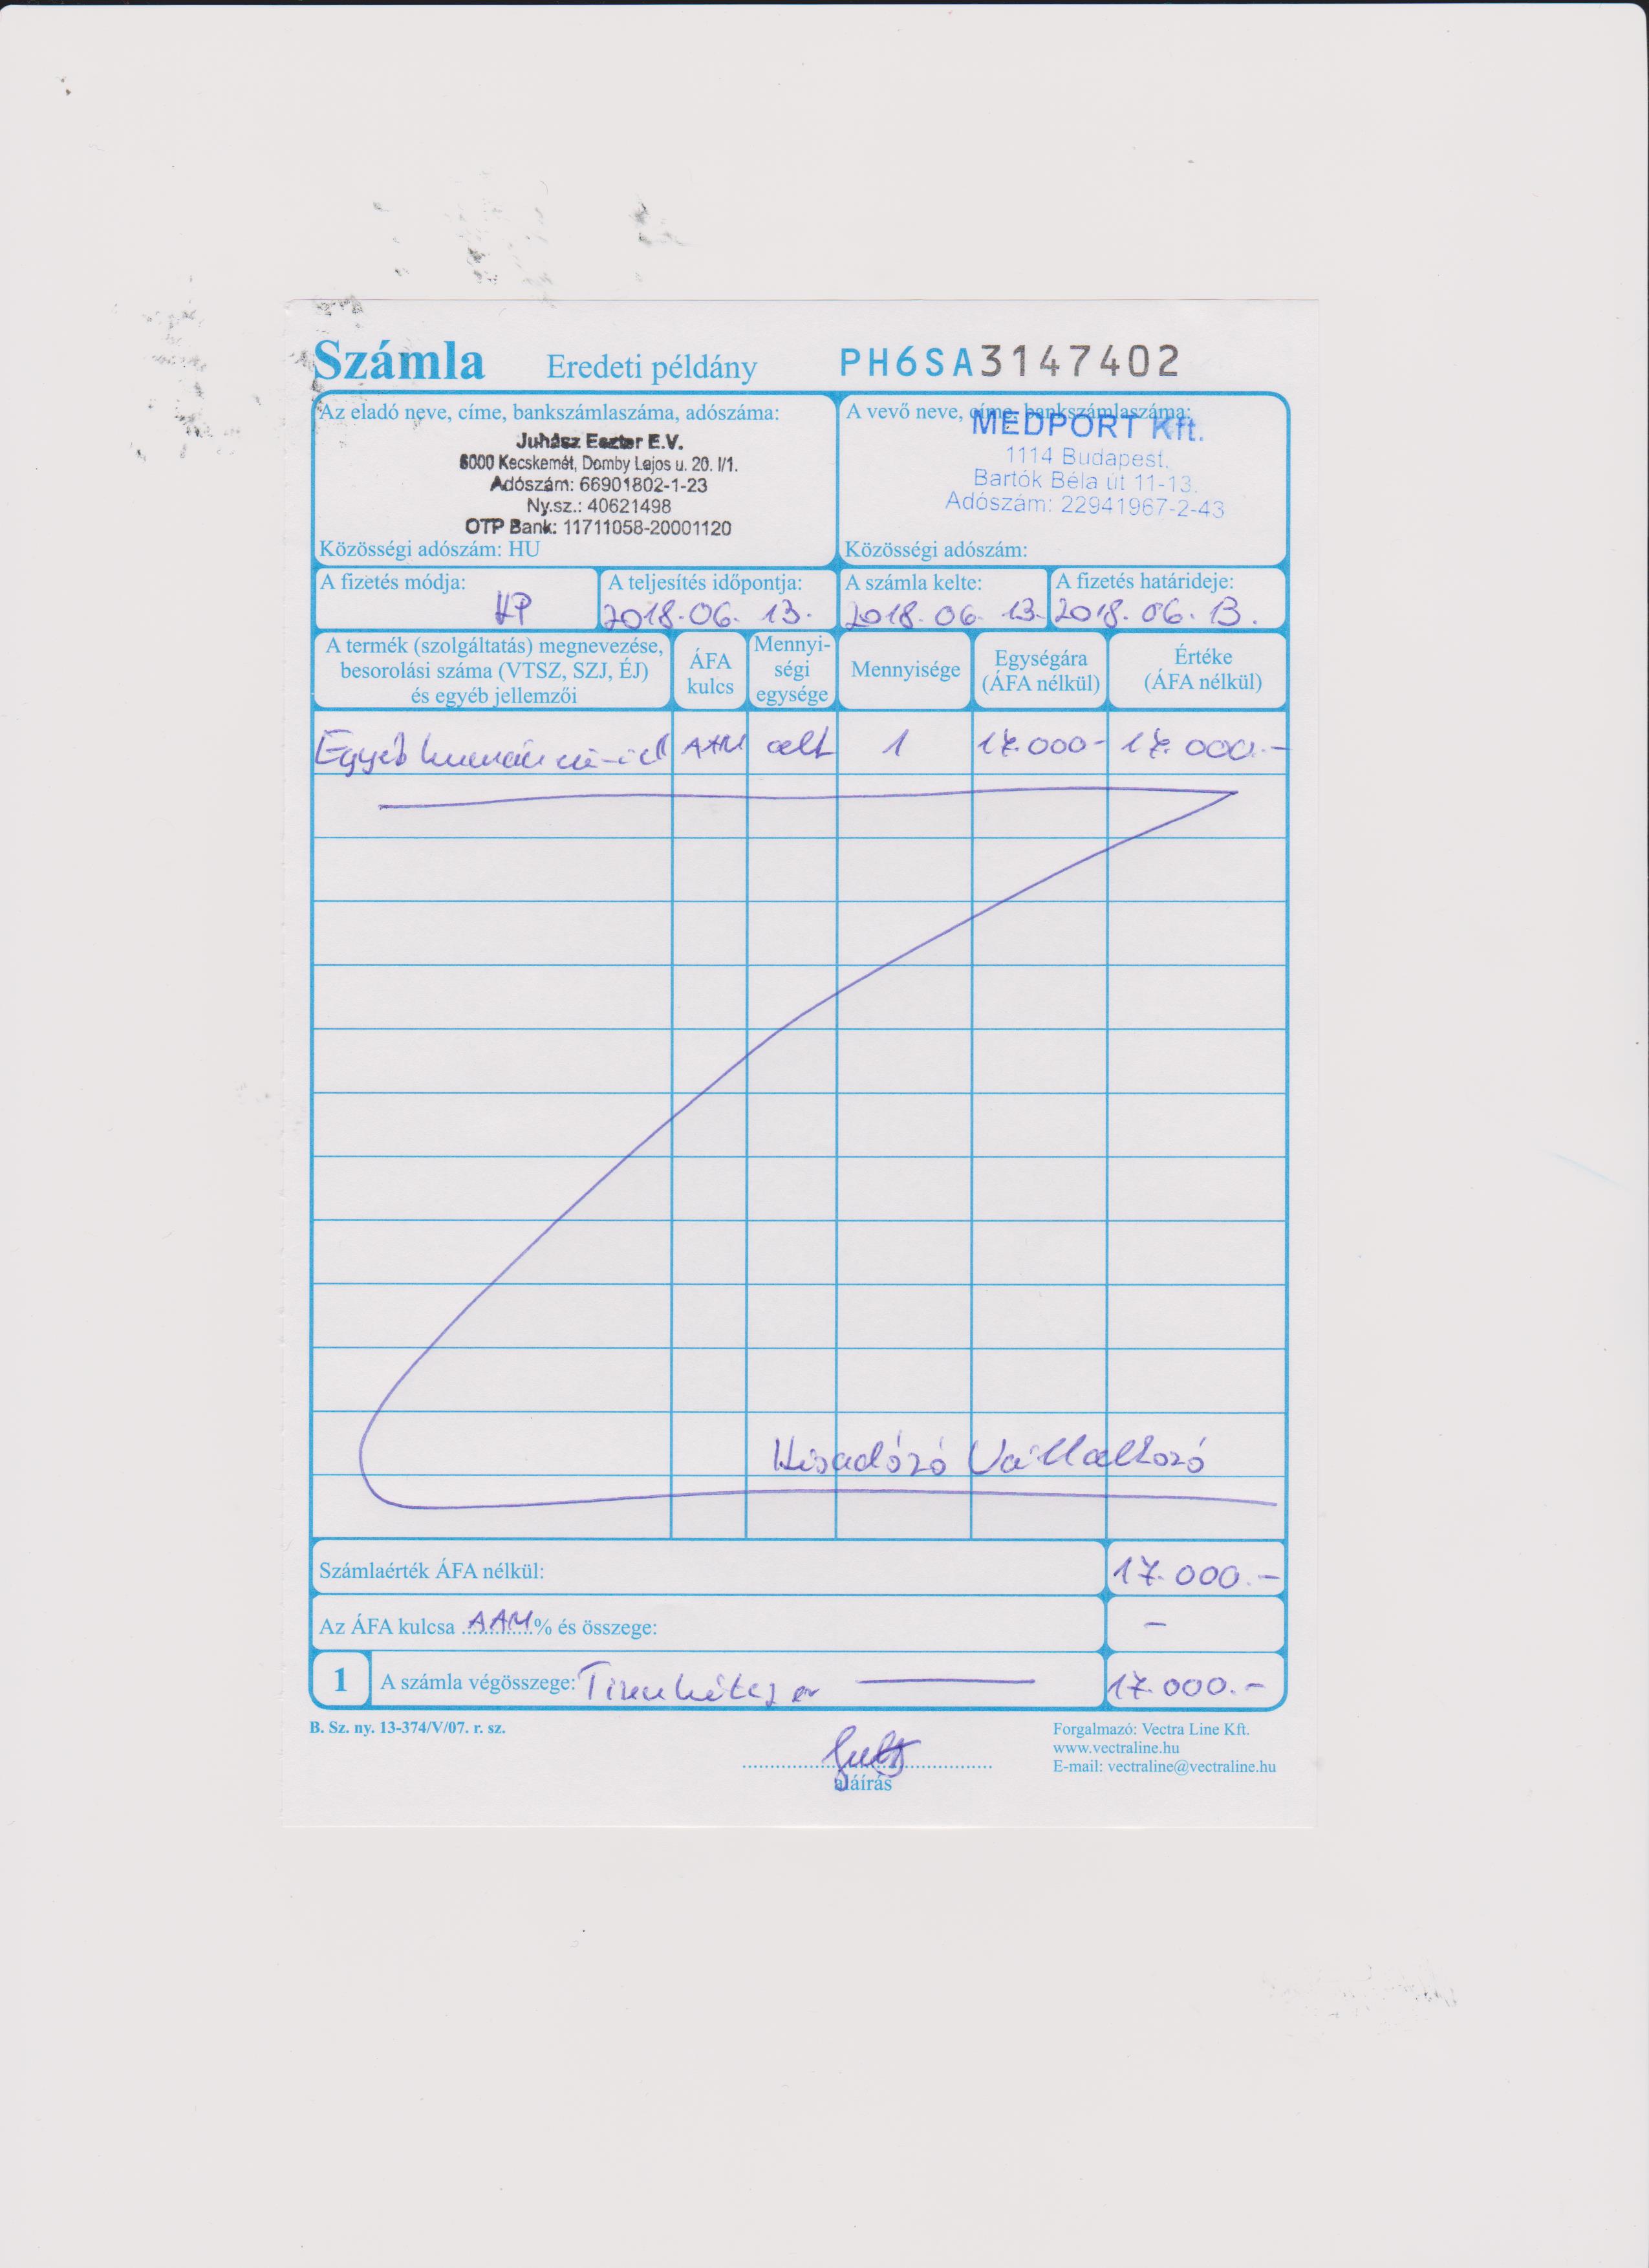 Számla Eredeti példány PH6SA3147402
Az eladó neve, címe, bankszámlaszáma, adószáma:
Juhász Eszter E.V.
6000 Kecskemét, Domby Lajos u. 20. I/1.
Adószám: 66901802-1-23
Ny.sz.: 40621498
OTP Bank: 11711058-20001120
Közösségi adószám: HU
A vevő neve, címe, bankszámlaszáma:
MEDPORT Kft.
1114 Budapest.
Bartók Béla út 11-13.
Adószám: 22941967-2-43
Közösségi adószám:
A fizetés módja: KP
A teljesítés időpontja: 2018.06.13.
A számla kelte: 2018.06.13.
A fizetés határideje: 2018.06.13.
A termék (szolgáltatás) megnevezése,
besorolási száma (VTSZ, SZJ, ÉJ)
és egyéb jellemzői
ÁFA
kulcs
Mennyi-
ségi
egysége
Mennyisége
Egységára
(ÁFA nélkül)
Értéke
(ÁFA nélkül)
Egyéb humán AAM alk 1 17.000- 17.000.-
Kisadózó Vállalkozó
Számlaérték ÁFA nélkül: 17.000.-
Az ÁFA kulcsa AAM % és összege: -
1 A számla végösszege: Tizenhétezer 17.000.-
B. Sz. ny. 13-374/V/07. r. sz.
aláírás
Forgalmazó: Vectra Line Kft.
www.vectraline.hu
E-mail: vectraline@vectraline.hu